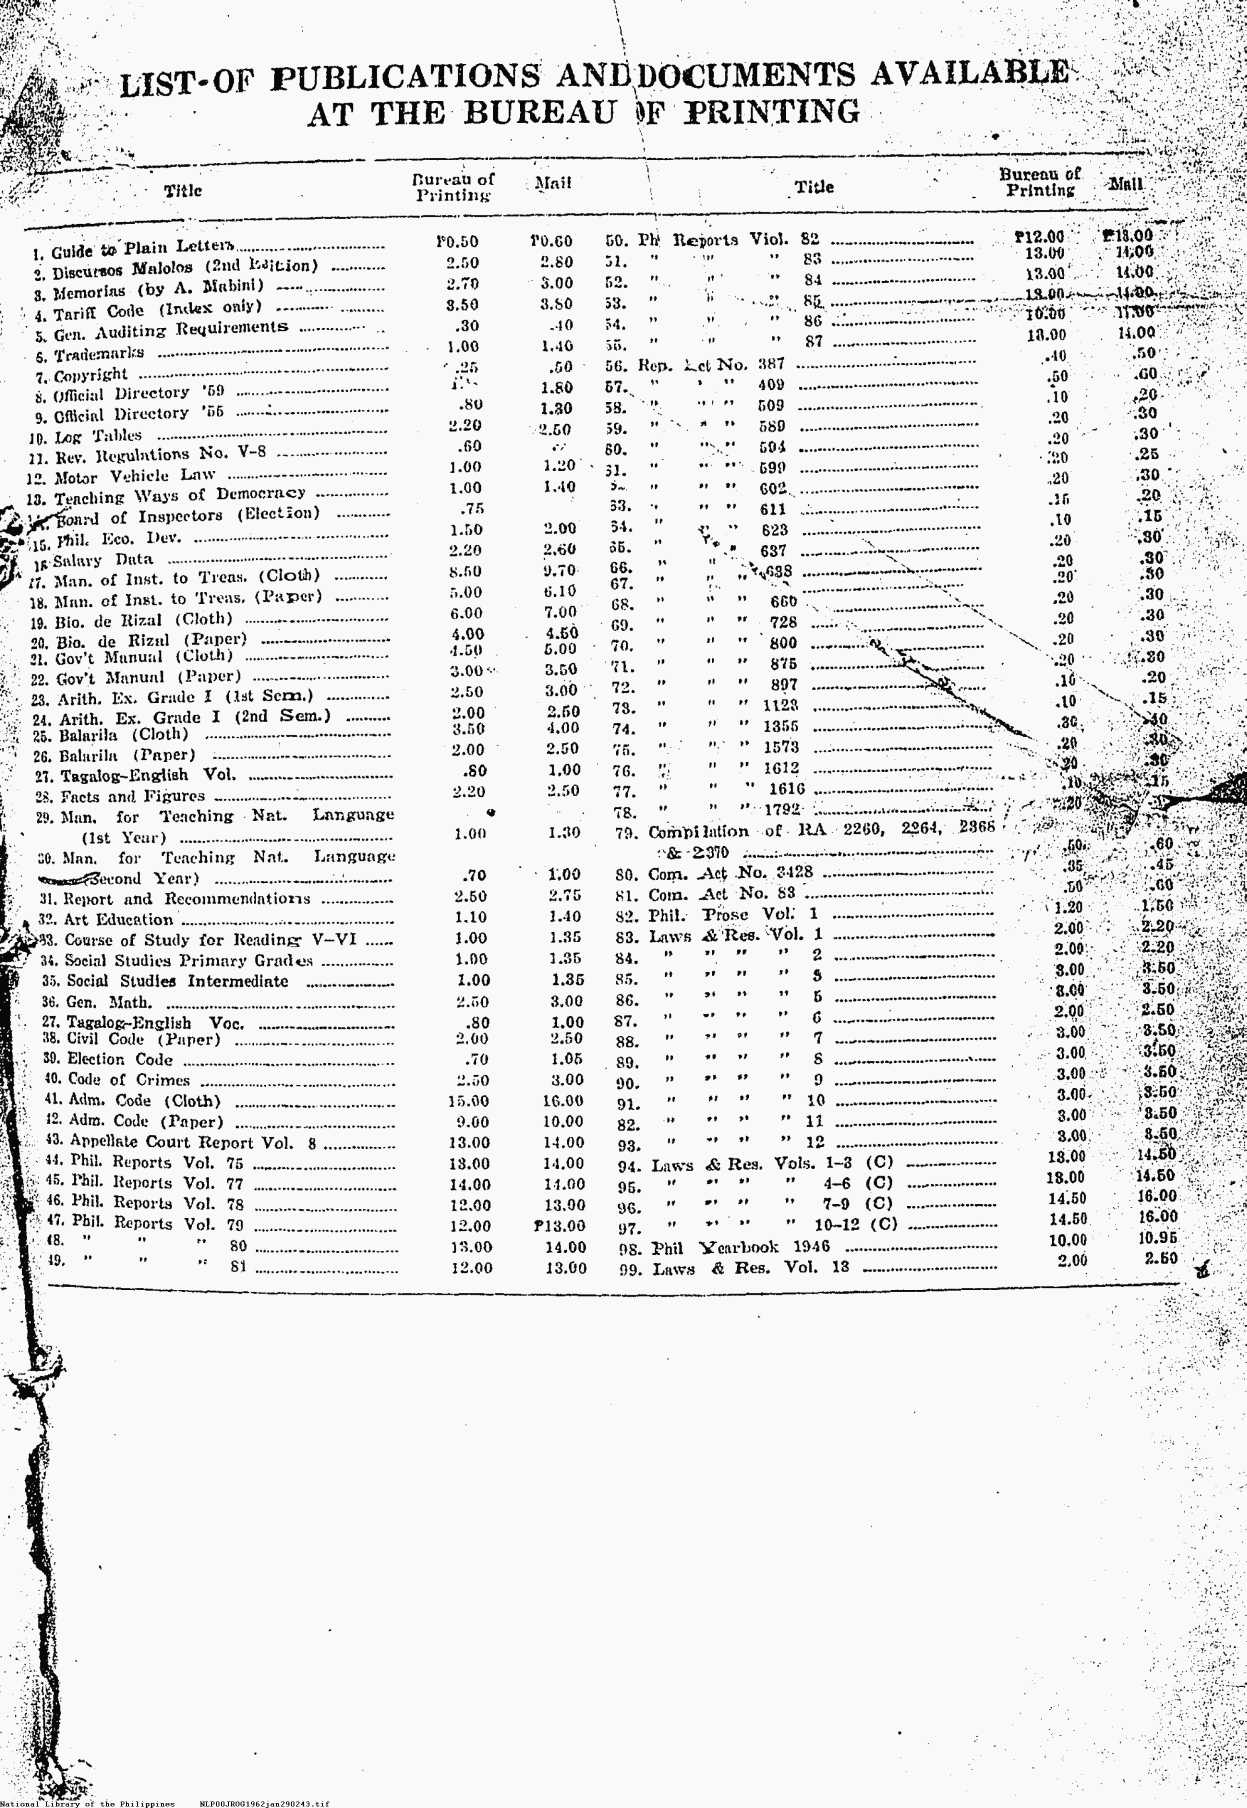 LIST OF PUBLICATIONS AND DOCUMENTS AVAILABLE
AT THE BUREAU OF PRINTING
Title Bureau of Printing Mail
1. Guide to Plain Letters ₱0.50 ₱0.60
2. Discursos Malolos (2nd Edition) 2.50 2.80
3. Memorias (by A. Mabini) 2.70 3.00
4. Tariff Code (Index only) 3.50 3.80
5. Gen. Auditing Requirements .30 .40
6. Trademarks 1.00 1.40
7. Copyright .25 .50
8. Official Directory '59 1.80
9. Official Directory '55 .80 1.30
10. Log Tables 2.20 2.50
11. Rev. Regulations No. V-8 .60
12. Motor Vehicle Law 1.00 1.20
13. Teaching Ways of Democracy 1.00 1.40
Board of Inspectors (Election) .75
15. Phil. Eco. Dev. 1.50 2.00
16 Salary Data 2.20 2.60
17. Man. of Inst. to Treas. (Cloth) 8.50 9.70
18. Man. of Inst. to Treas. (Paper) 5.00 6.10
19. Bio. de Rizal (Cloth) 6.00 7.00
20. Bio. de Rizal (Paper) 4.00 4.50
21. Gov't Manual (Cloth) 4.50 5.00
22. Gov't Manual (Paper) 3.00 3.50
23. Arith. Ex. Grade I (1st Sem.) 2.50 3.00
24. Arith. Ex. Grade I (2nd Sem.) 2.00 2.50
25. Balarila (Cloth) 3.50 4.00
26. Balarila (Paper) 2.00 2.50
27. Tagalog-English Vol. .80 1.00
28. Facts and Figures 2.20 2.50
29. Man. for Teaching Nat. Language
(1st Year) 1.00 1.30
30. Man. for Teaching Nat. Language
(Second Year) .70 1.00
31. Report and Recommendations 2.50 2.75
32. Art Education 1.10 1.40
33. Course of Study for Reading V-VI 1.00 1.35
34. Social Studies Primary Grades 1.00 1.35
35. Social Studies Intermediate 1.00 1.35
36. Gen. Math. 2.50 3.00
27. Tagalog-English Voc. .80 1.00
38. Civil Code (Paper) 2.00 2.50
39. Election Code .70 1.05
40. Code of Crimes 2.50 3.00
41. Adm. Code (Cloth) 15.00 16.00
42. Adm. Code (Paper) 9.00 10.00
43. Appellate Court Report Vol. 8 13.00 14.00
44. Phil. Reports Vol. 75 13.00 14.00
45. Phil. Reports Vol. 77 14.00 14.00
46. Phil. Reports Vol. 78 12.00 13.00
47. Phil. Reports Vol. 79 12.00 ₱13.00
48. " " " 80 13.00 14.00
49. " " " 81 12.00 13.00
Title Bureau of Printing Mail
50. Ph Reports Viol. 82 ₱12.00 ₱13.00
51. " " " 83 13.00 14.00
52. " " " 84 13.00 14.00
53. " " " 85 13.00 14.00
54. " " " 86 10.00 11.00
55. " " " 87 13.00 14.00
56. Rep. Act No. 387 .40 .50
57. " " " 409 .50 .60
58. " " " 509 .10 .20
59. " " " 589 .20 .30
60. " " " 594 .20 .30
61. " " " 599 .20 .25
" " " 602 .20 .30
63. " " " 611 .15 .20
64. " " " 623 .10 .15
65. " " 637 .20 .30
66. " " " 638 .20 .30
67. " " .20 .30
68. " " " 660 .20 .30
69. " " " 728 .20 .30
70. " " " 800 .20 .30
71. " " " 875 .20 .30
72. " " " 897 .10 .20
73. " " " 1123 .10 .15
74. " " " 1355 .30 .40
75. " " " 1573 .20 .30
76. " " " 1612 .20 .30
77. " " " 1616 .10 .15
78. " " " 1792 .20
79. Compilation of RA 2260, 2264, 2368
& 2370 .50 .60
80. Com. Act No. 3428 .35 .45
81. Com. Act No. 83 .50 .60
82. Phil. Prose Vol. 1 1.20 1.50
83. Laws & Res. Vol. 1 2.00 2.20
84. " " " " 2 2.00 2.20
85. " " " " 3 3.00 3.50
86. " " " " 5 3.00 3.50
87. " " " " 6 2.00 2.50
88. " " " " 7 3.00 3.50
89. " " " " 8 3.00 3.50
90. " " " " 9 3.00 3.50
91. " " " " 10 3.00 3.50
82. " " " " 11 3.00 3.50
93. " " " " 12 3.00 3.50
94. Laws & Res. Vols. 1-3 (C) 13.00 14.50
95. " " " " 4-6 (C) 13.00 14.50
96. " " " " 7-9 (C) 14.50 16.00
97. " " " " 10-12 (C) 14.50 16.00
98. Phil Yearbook 1946 10.00 10.95
99. Laws & Res. Vol. 13 2.00 2.50
National Library of the Philippines NLP00JROG1962jan290243.tif